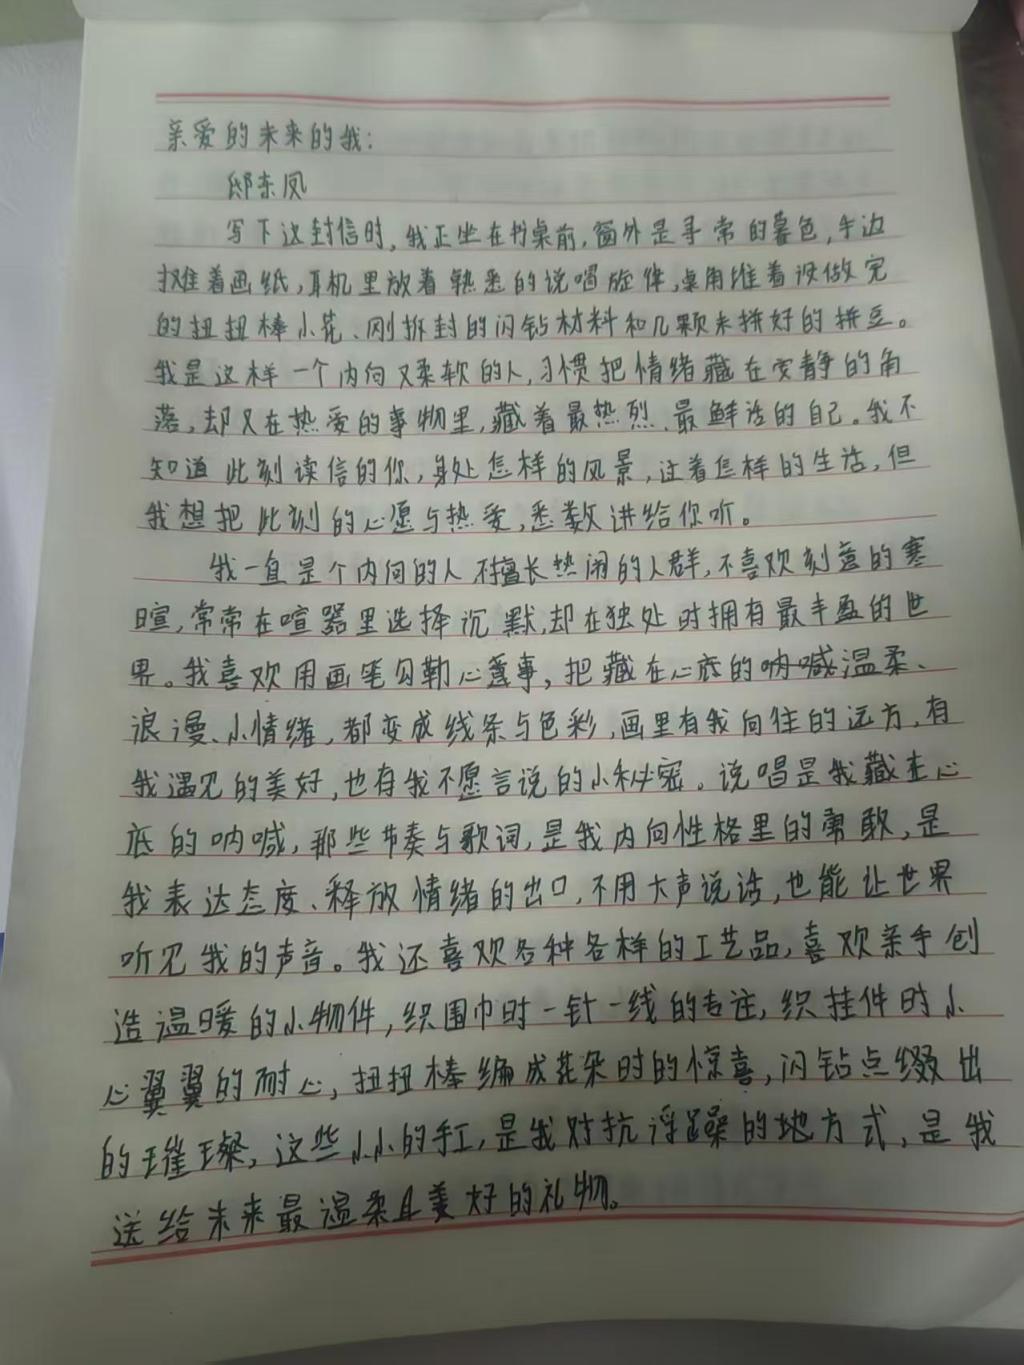 亲爱的未来的我：
邸东凤
写下这封信时，我正坐在书桌前，窗外是寻常的暮色，手边
摊着画纸，耳机里放着熟悉的说唱旋律，桌角堆着没做完
的扭扭棒小花、刚拆封的闪钻材料和几颗未拼好的拼豆。
我是这样一个内向又柔软的人，习惯把情绪藏在安静的角
落，却又在热爱的事物里，藏着最热烈、最鲜活的自己。我不
知道此刻读信的你，身处怎样的风景，过着怎样的生活，但
我想把此刻的心愿与热爱，悉数讲给你听。
我一直是个内向的人，不擅长热闹的人群，不喜欢刻意的寒
暄，常常在喧嚣里选择沉默，却在独处时拥有最丰盈的世
界。我喜欢用画笔勾勒心事，把藏在心底的呐喊温柔、
浪漫、小情绪，都变成线条与色彩，画里有我向往的远方，有
我遇见的美好，也有我不愿言说的小秘密。说唱是我藏在心
底的呐喊，那些节奏与歌词，是我内向性格里的勇敢，是
我表达态度、释放情绪的出口，不用大声说话，也能让世界
听见我的声音。我还喜欢各种各样的工艺品，喜欢亲手创
造温暖的小物件，织围巾时一针一线的专注，织挂件时小
心翼翼的耐心，扭扭棒编成花朵时的惊喜，闪钻点缀出
的璀璨，这些小小的手工，是我对抗浮躁的地方式，是我
送给未来最温柔且美好的礼物。